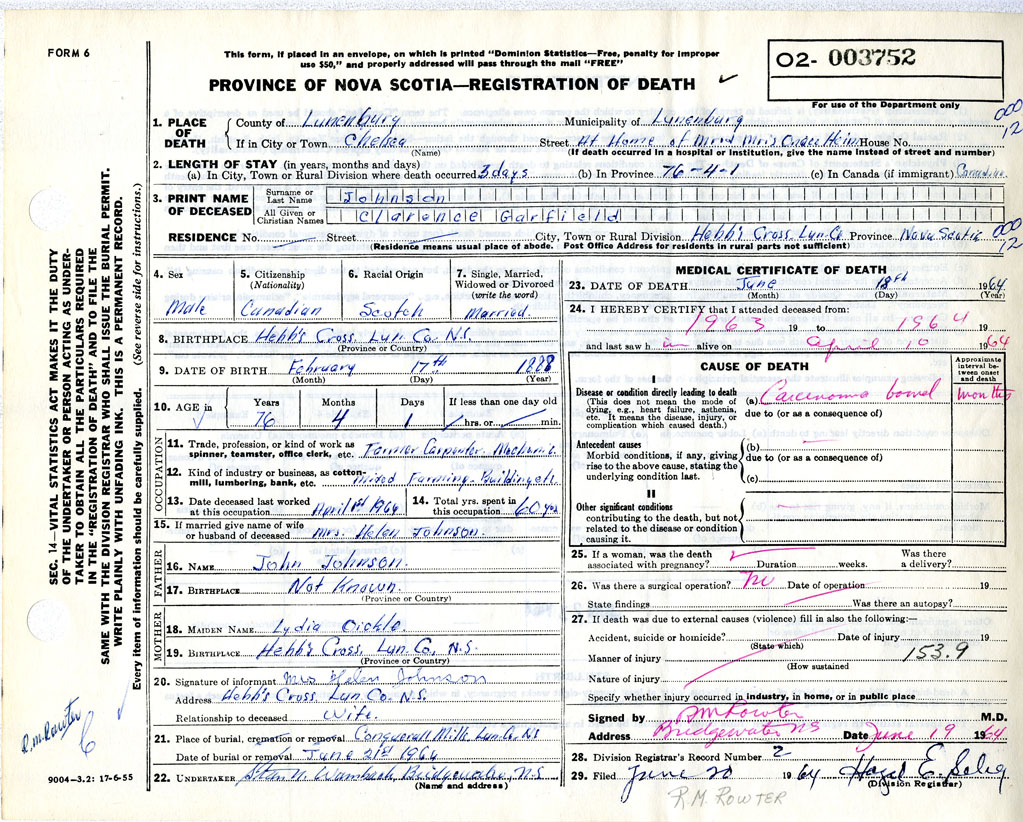 FORM 6
This form, if placed in an envelope, on which is printed "Dominion Statistics—Free, penalty for improper
use $50," and properly addressed will pass through the mail "FREE"
PROVINCE OF NOVA SCOTIA—REGISTRATION OF DEATH ✓
02- 003752
For use of the Department only
000
12
1. PLACE OF DEATH
County of Lunenburg Municipality of Lunenburg
If in City or Town Chelsea Street At Home of Mr and Mrs House No.
(Name) (If death occurred in a hospital or institution, give the name instead of street and number)
2. LENGTH OF STAY (in years, months and days)
(a) In City, Town or Rural Division where death occurred 3 days (b) In Province 76-4-1 (c) In Canada (if immigrant) Canadian
3. PRINT NAME OF DECEASED
Surname or Last Name Johnson
All Given or Christian Names Clarence Garfield
RESIDENCE No. Street City, Town or Rural Division Hebb's Cross, Lun. Co. Province Nova Scotia
(Residence means usual place of abode. Post Office Address for residents in rural parts not sufficient)
000
12
4. Sex Male
5. Citizenship (Nationality) Canadian
6. Racial Origin Scotch
7. Single, Married, Widowed or Divorced (write the word) Married.
8. BIRTHPLACE Hebb's Cross, Lun. Co. N.S.
(Province or Country)
9. DATE OF BIRTH February 17th 1888
(Month) (Day) (Year)
10. AGE in Years Months Days If less than one day old
76 4 1 hrs. or min.
OCCUPATION
11. Trade, profession, or kind of work as spinner, teamster, office clerk, etc. Farmer Carpenter Mechanic
12. Kind of industry or business, as cotton-mill, lumbering, bank, etc. Mixed Farming. Building etc.
13. Date deceased last worked at this occupation April 1st 1964
14. Total yrs. spent in this occupation 60 yrs
15. If married give name of wife or husband of deceased Mrs. Helen Johnson.
FATHER
16. NAME John Johnson.
17. BIRTHPLACE Not Known.
(Province or Country)
MOTHER
18. MAIDEN NAME Lydia Oickle.
19. BIRTHPLACE Hebb's Cross, Lun. Co., N.S.
(Province or Country)
20. Signature of informant Mrs Helen Johnson
Address Hebb's Cross Lun. Co. N.S.
Relationship to deceased Wife.
21. Place of burial, cremation or removal Conquerall Mills Lun. Co. NS
Date of burial or removal June 21st 1964
22. UNDERTAKER N. Wambach, Bridgewater, N.S.
(Name and address)
MEDICAL CERTIFICATE OF DEATH
23. DATE OF DEATH June 18th 1964
(Month) (Day) (Year)
24. I HEREBY CERTIFY that I attended deceased from:
1963 19 to 1964 19
and last saw h im alive on April 10 1964
CAUSE OF DEATH
Approximate interval between onset and death
I
Disease or condition directly leading to death (a) Carcinoma bowel months
(This does not mean the mode of dying, e.g., heart failure, asthenia, etc. It means the disease, injury, or complication which caused death.)
due to (or as a consequence of)
Antecedent causes
Morbid conditions, if any, giving rise to the above cause, stating the underlying condition last.
(b)
due to (or as a consequence of)
(c)
II
Other significant conditions
contributing to the death, but not related to the disease or condition causing it.
25. If a woman, was the death associated with pregnancy? Duration weeks. Was there a delivery?
26. Was there a surgical operation? No Date of operation 19
State findings Was there an autopsy?
27. If death was due to external causes (violence) fill in also the following:—
Accident, suicide or homicide? Date of injury 19
(State which)
Manner of injury 153.9
(How sustained)
Nature of injury
Specify whether injury occurred in industry, in home, or in public place
Signed by RM Rowter M.D.
Address Bridgewater NS Date June 19 1964
28. Division Registrar's Record Number 2
29. Filed June 20 1964 Hazel E.
(Division Registrar)
R.M. ROWTER
SEC. 14—VITAL STATISTICS ACT MAKES IT THE DUTY
OF THE UNDERTAKER OR PERSON ACTING AS UNDER-
TAKER TO OBTAIN ALL THE PARTICULARS REQUIRED
IN THE "REGISTRATION OF DEATH" AND TO FILE THE
SAME WITH THE DIVISION REGISTRAR WHO SHALL ISSUE THE BURIAL PERMIT.
WRITE PLAINLY WITH UNFADING INK. THIS IS A PERMANENT RECORD.
Every item of information should be carefully supplied. (See reverse side for instructions.)
R.M. Rowter
6
9004—3.2: 17-6-55